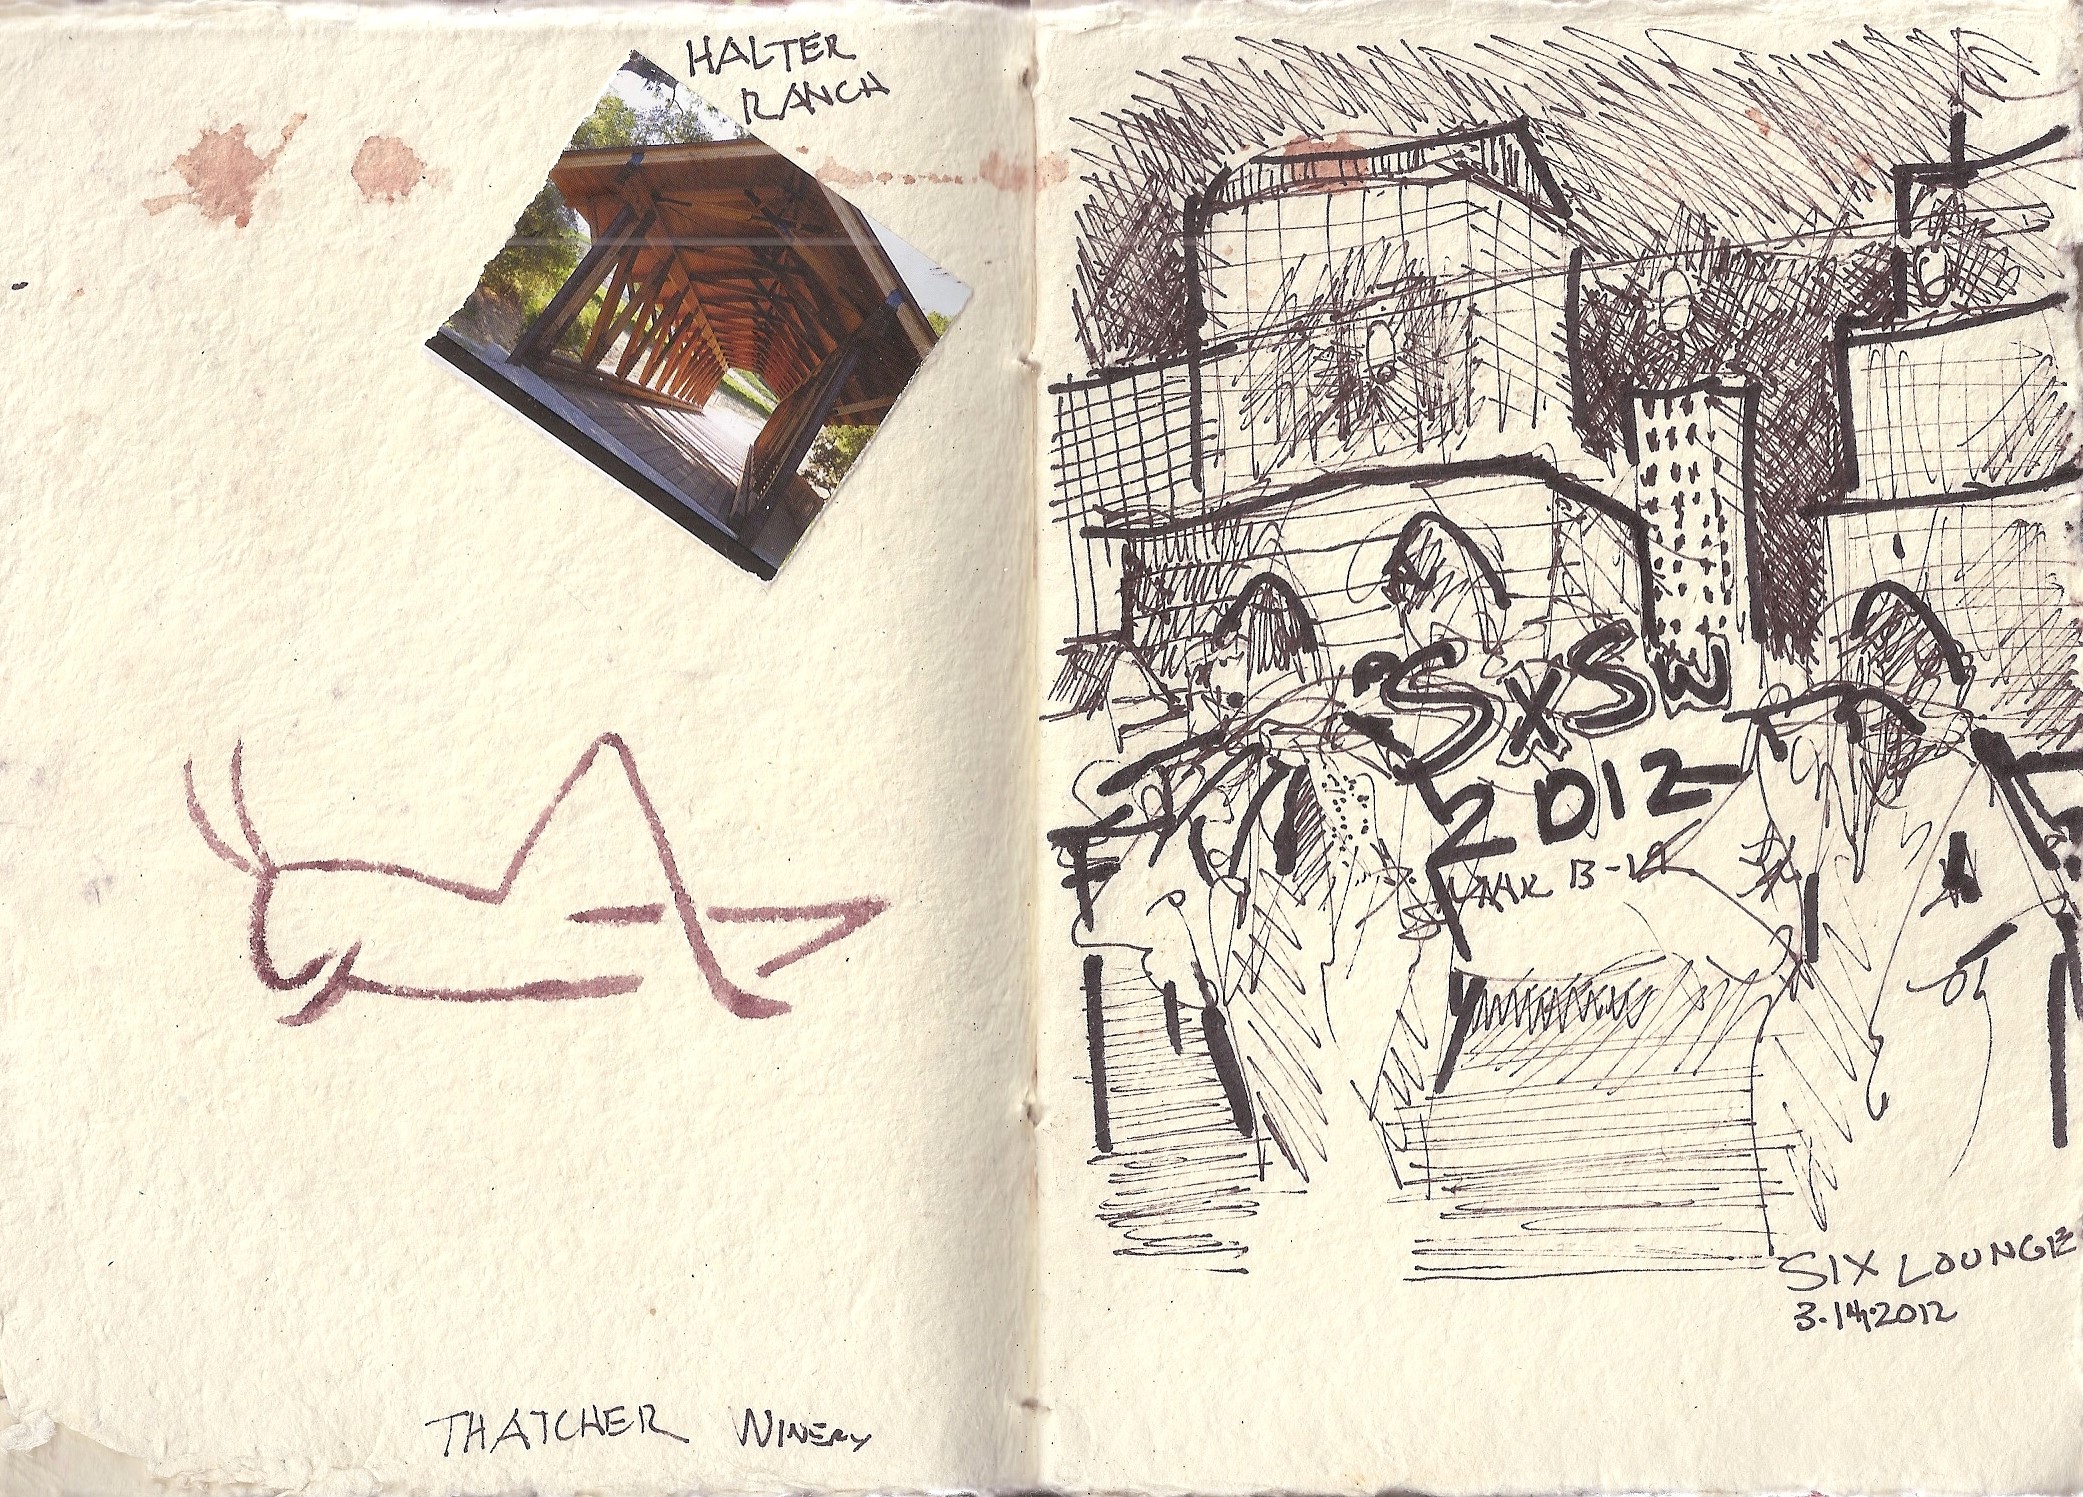 HALTER
RANCH
THATCHER WINERY
SXSW
2012
SIX LOUNGE
3.14.2012